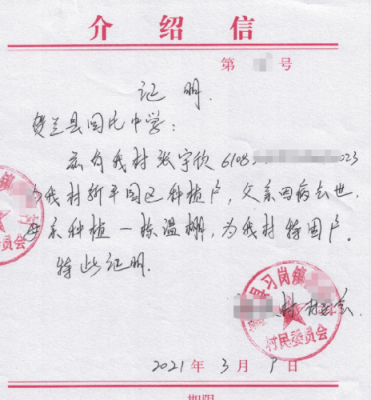 介绍信
第 号
证明
贺兰县回民中学:
兹有我村张宇欣 6108 023
为我村新平园区种植户,父亲因病去世
母亲种植一栋温棚,为我村特困户。
特此证明。
县习岗镇
村民委员会
村村委会
2021年3月9日